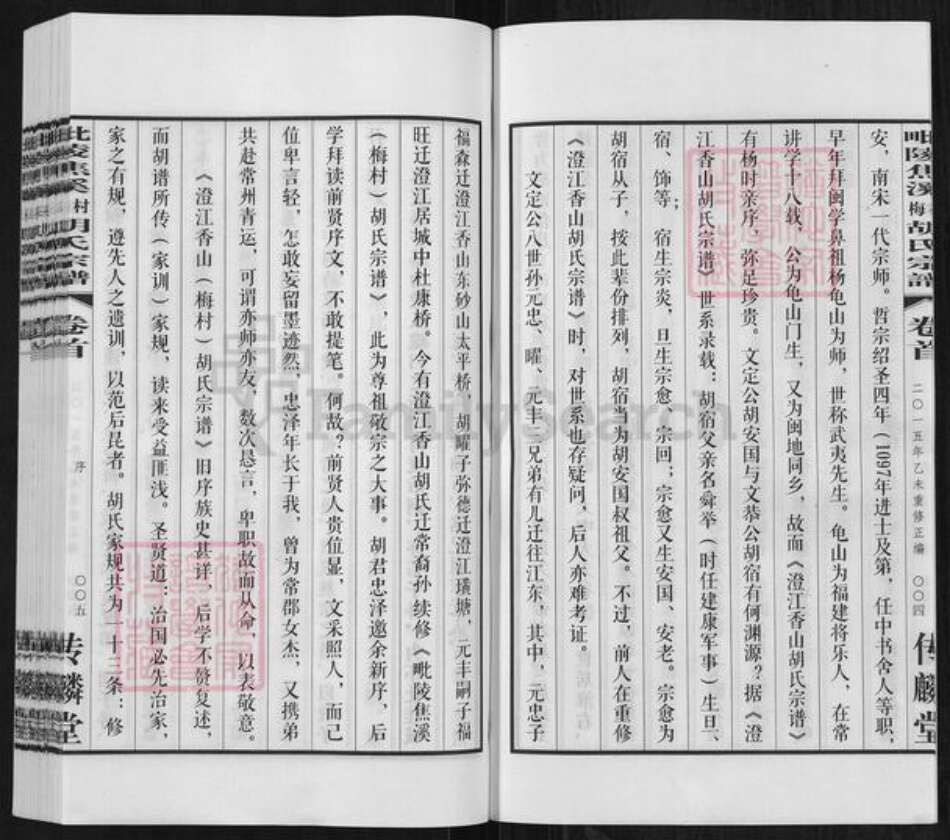 毗陵焦溪梅村胡氏宗譜
卷首
二〇一五年乙未重修正编
〇〇四
传麟堂
安，南宋一代宗师。哲宗绍圣四年（1097年进士及第，任中书舍人等职，
早年拜闽学鼻祖杨龟山为师，世称武夷先生。龟山为福建将乐人，在常
讲学十八载，公为龟山门生，又为闽地同乡，故而《澄江香山胡氏宗谱》
有杨时亲序，弥足珍贵。文定公胡安国与文恭公胡宿有何渊源？据《澄
江香山胡氏宗谱》世系录载：胡宿父亲名舜举（时任建康军事）生旦、
宿、饰等；宿生宗炎，旦生宗愈、宗回；宗愈又生安国、安老。宗愈为
胡宿从子，按此辈份排列，胡宿当为胡安国权祖父。不过，前人在重修
《澄江香山胡氏宗谱》时，对世系也存疑问，后人亦难考证。
文定公八世孙元忠、曜、元丰三兄弟有儿迁往江东，其中，元忠子
福森迁澄江香山东砂山太平桥，胡曜子弥德迁澄江璜塘，元丰嗣子福
旺迁澄江居城中杜康桥。今有澄江香山胡氏迁常裔孙续修《毗陵焦溪
（梅村）胡氏宗谱》，此为尊祖敬宗之大事。胡君忠泽邀余新序，后
学拜读前贤序文，不敢提笔。何故？前贤人贵位显，文采照人，而己
位卑言轻，怎敢妄留墨迹然，忠泽年长于我，曾为常郡女杰，又携弟
共赴常州青运，可谓亦师亦友，数次恳言，卑职故而从命，以表敬意。
《澄江香山（梅村）胡氏宗谱》旧序族史甚详，后学不赘复述，
而胡谱所传（家训）家规，读来受益匪浅。圣贤道：治国必先治家，
家之有规，遵先人之遗训，以范后昆者。胡氏家规共为一十三条：修
毗陵焦溪村胡氏宗譜
卷首
序
〇〇五
传麟堂
FamilySearch